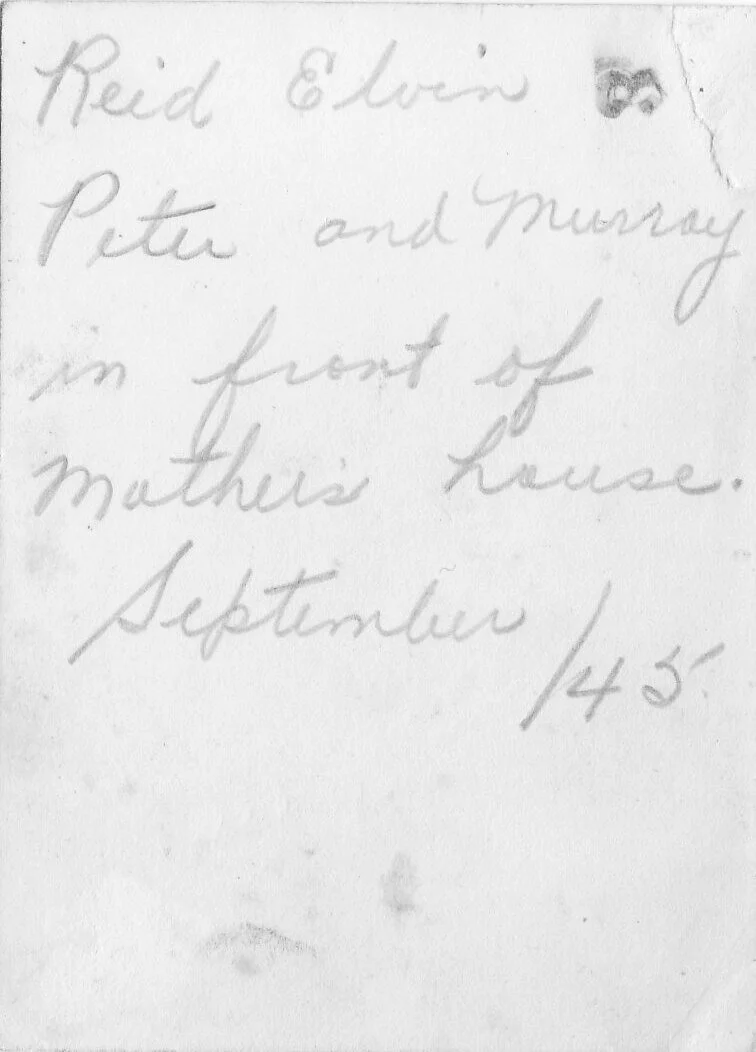 Reid Elvin
Peter and Murray
in front of
Mother's house.
September
/45